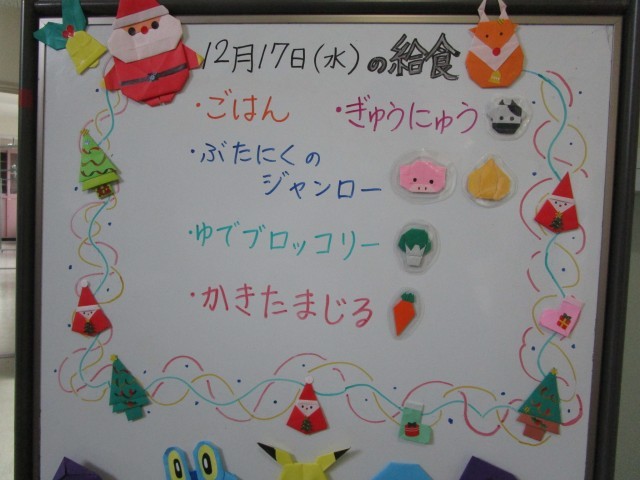 12月17日(水)の給食
・ごはん ・ぎゅうにゅう
・ぶたにくの
ジャンロー
・ゆでブロッコリー
・かきたまじる